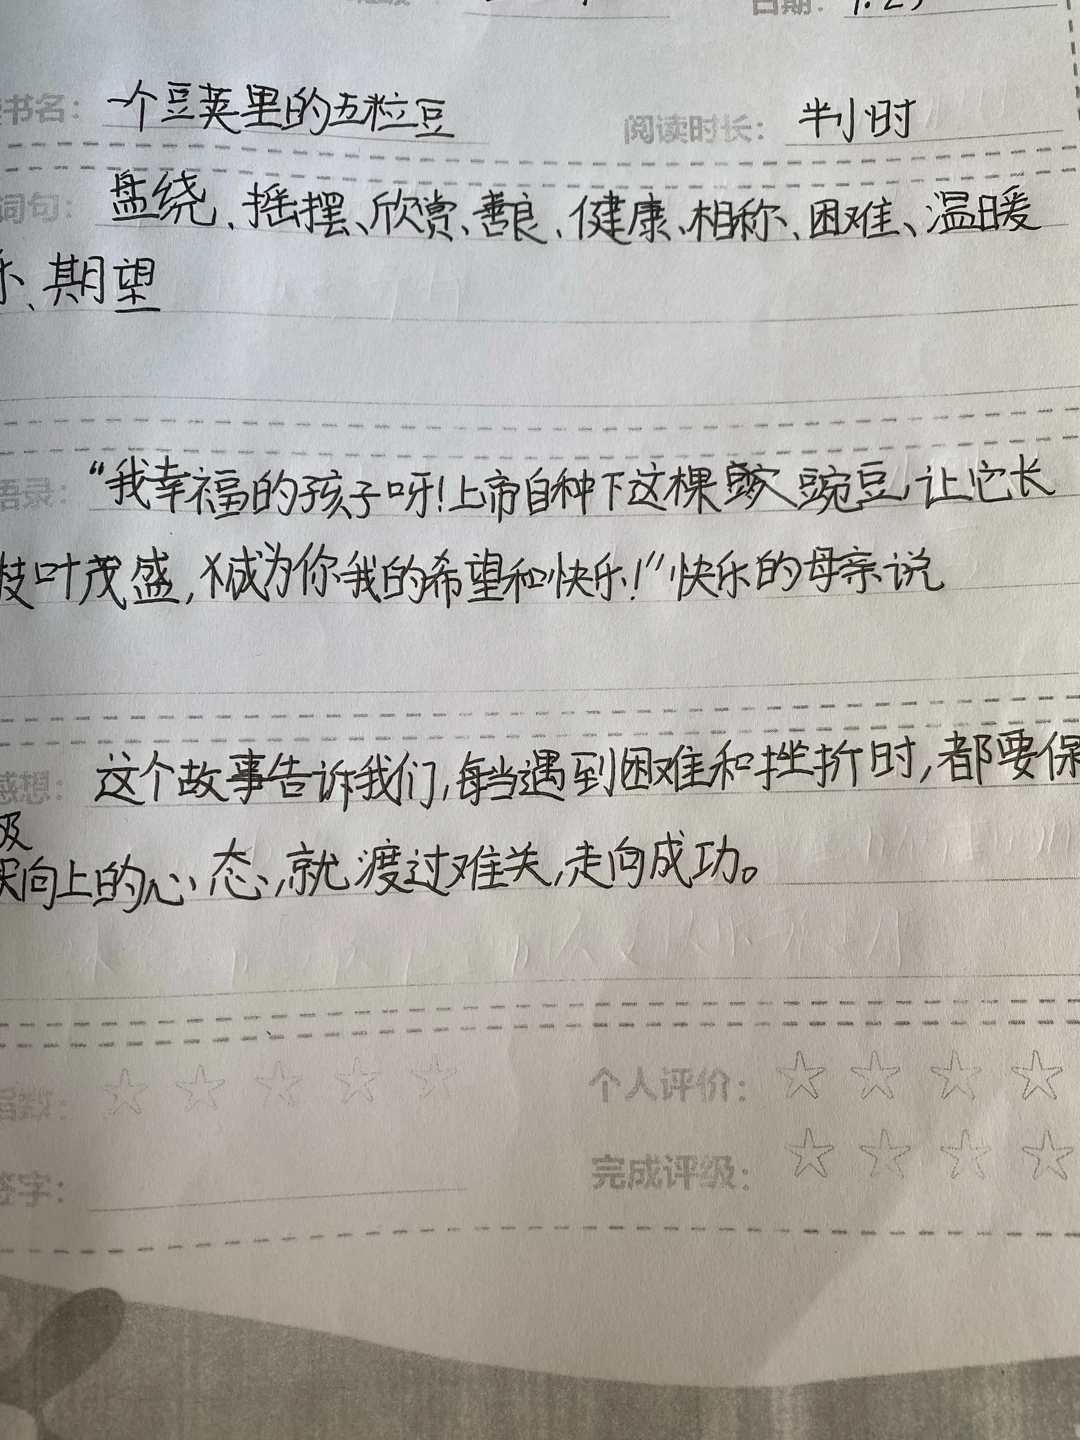 日期: 1.25
书名: 一个豆荚里的五粒豆 阅读时长: 半小时
词句: 盘绕、摇摆、欣赏、善良、健康、相称、困难、温暖
乐、期望
语录: “我幸福的孩子呀!上帝自种下这棵豌豆,让它长
枝叶茂盛,成为你我的希望和快乐!”快乐的母亲说
感想: 这个故事告诉我们,每当遇到困难和挫折时,都要保
极
向上的心态,就渡过难关,走向成功。
指数: 个人评价:
签字: 完成评级: